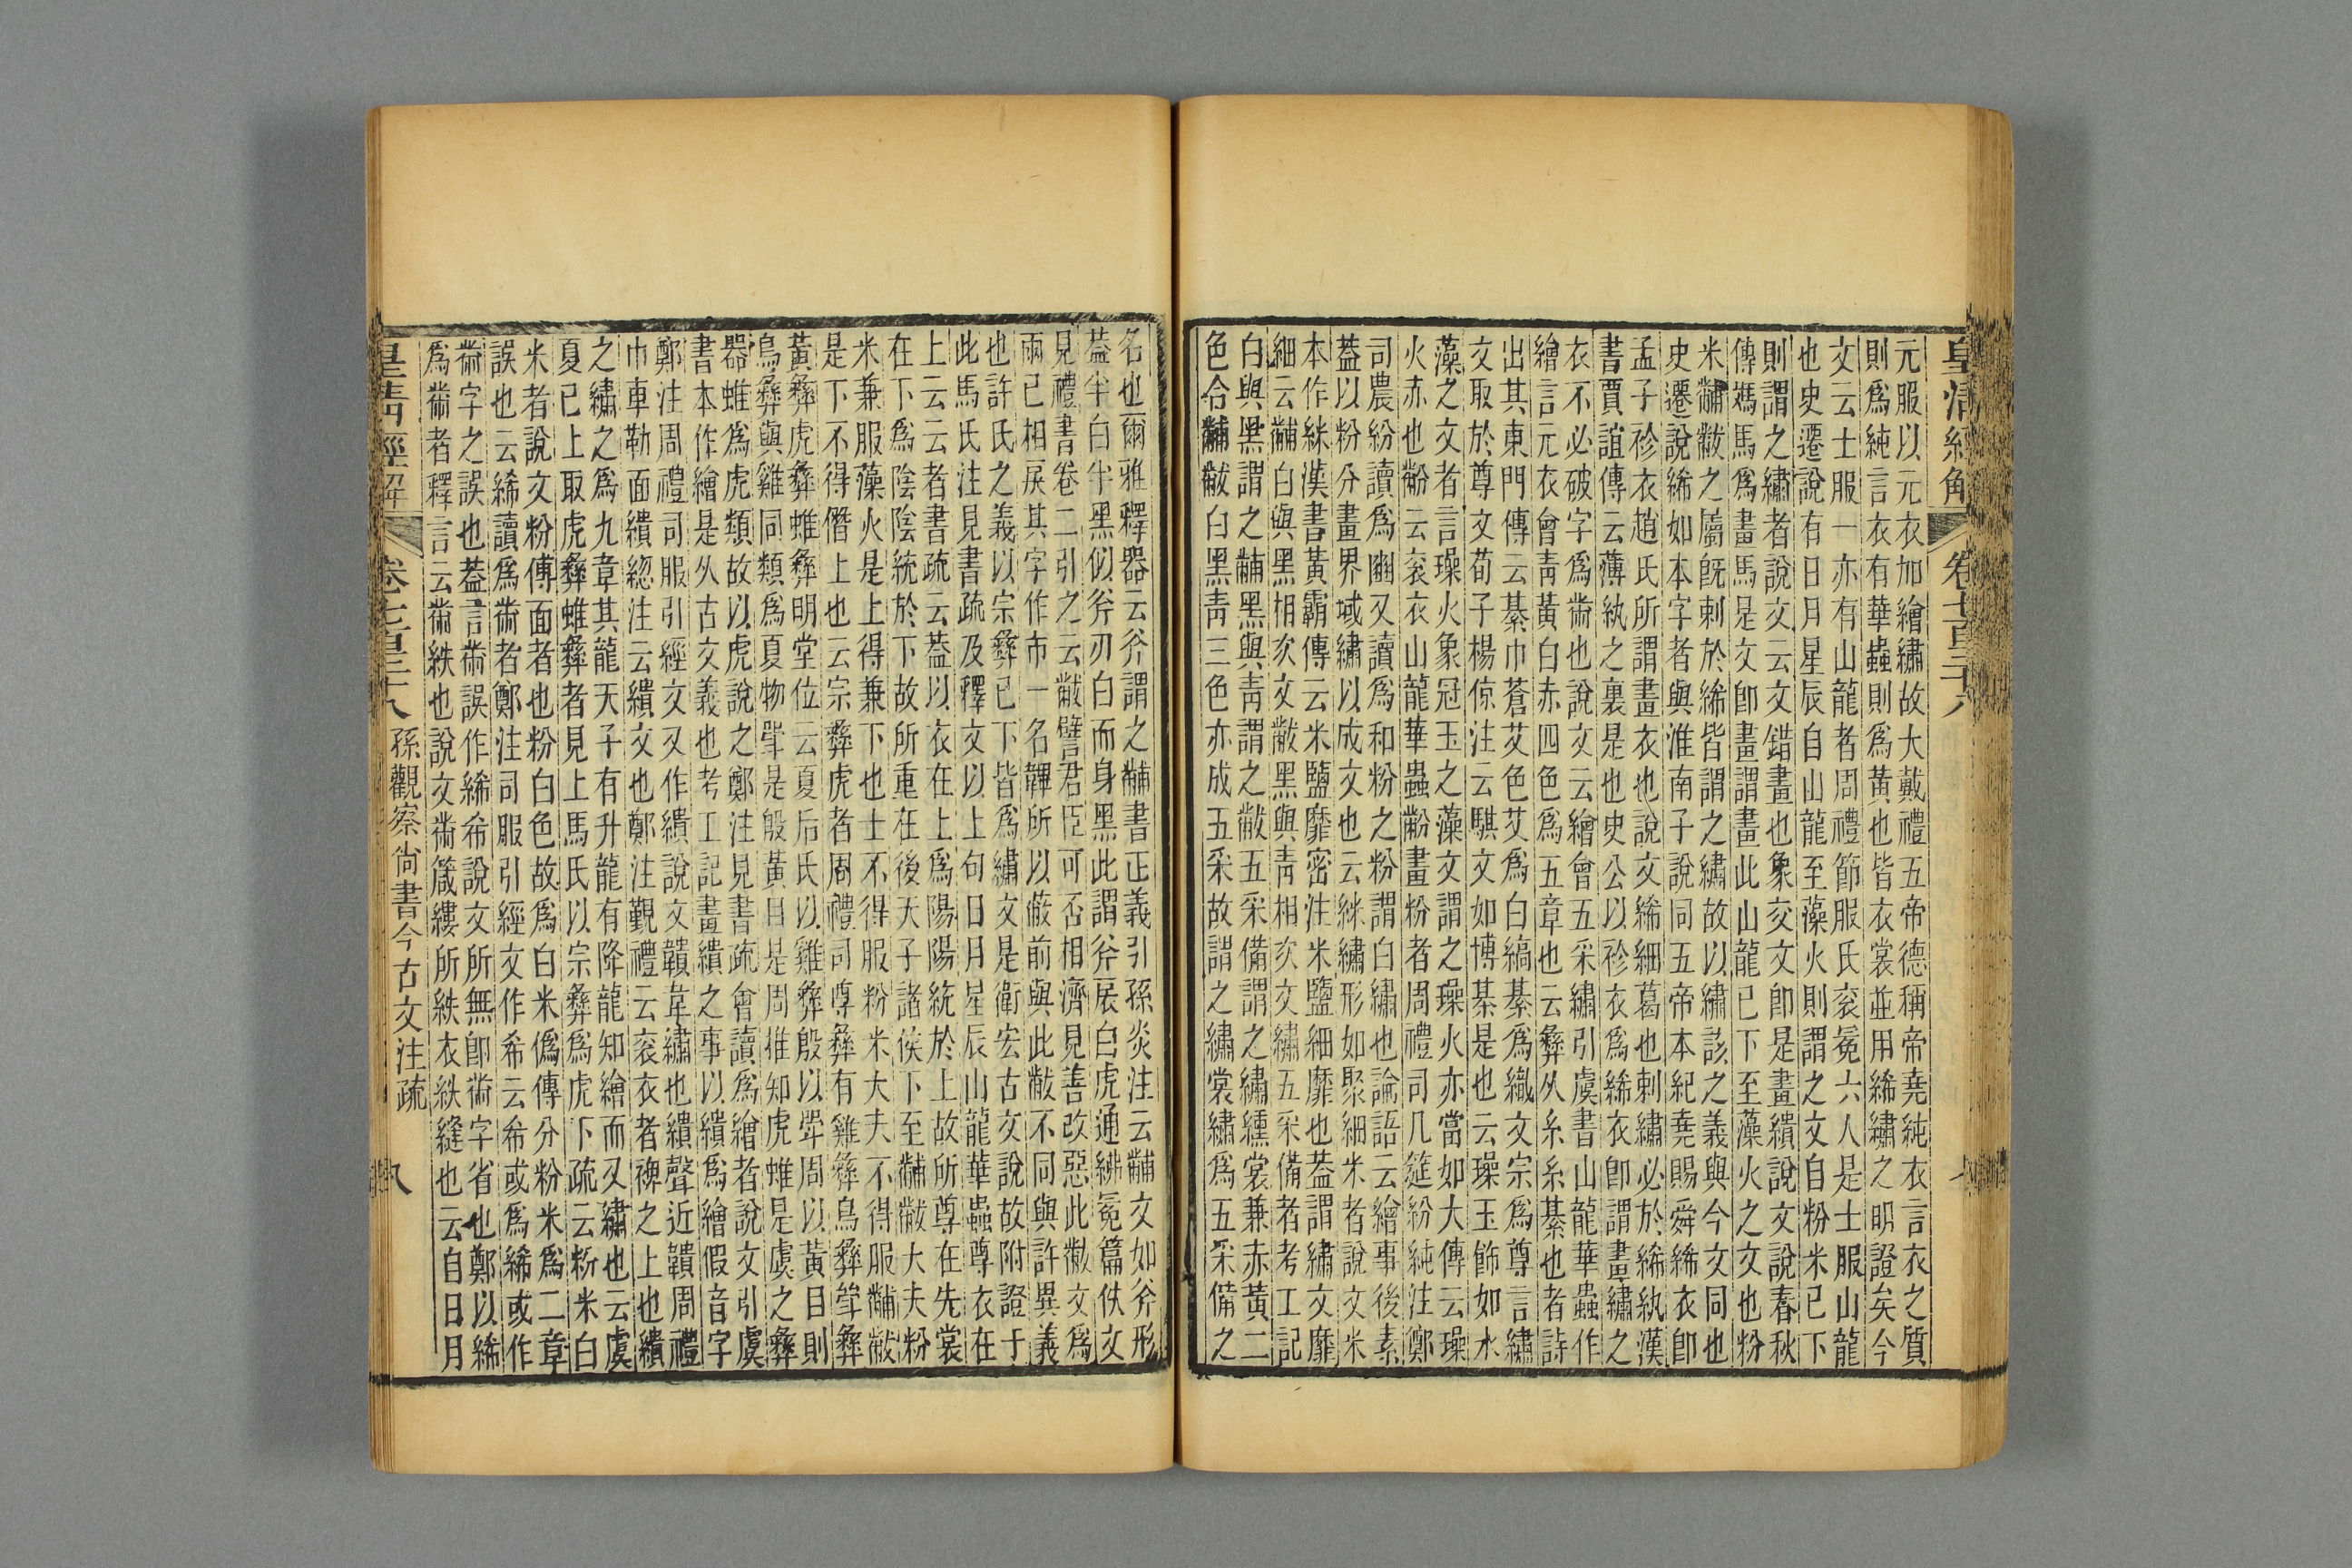 皇清經解
卷七百三十八
元服以元衣加繪繡故大戴禮五帝德稱帝堯純衣言衣之質
則爲純言衣有華蟲則爲黃也皆衣裳並用絺繡之明證矣今
文云士服一亦有山龍者周禮節服氏袞冕六人是士服山龍
也史遷說有日月星辰自山龍至藻火則謂之文自粉米已下
則謂之繡者說文云文錯畫也象交文卽是畫繢說文說春秋
傳媽馬爲畫馬是文卽畫謂畫此山龍已下至藻火之文也粉
米黼黻之屬旣刺於絺皆謂之繡故以繡該之義與今文同也
史遷說絺如本字者與淮南子說同五帝本紀堯賜舜絺衣卽
孟子袗衣趙氏所謂畫衣也說文絺細葛也刺繡必於絺紈漢
書賈誼傳云薄紈之裏是也史公以袗衣爲絺衣卽謂畫繡之
衣不必破字爲黹也說文云繪會五采繡引虞書山龍華蟲作
繪言元衣會靑黃白赤四色爲五章也云彝从糸糸綦也者詩
出其東門傳云綦巾蒼艾色艾爲白縞綦爲織文宗爲尊言繡
文取於尊文荀子楊倞注云騏文如博綦是也云璪玉飾如水
藻之文者言璪火象冠玉之藻文謂之璪火亦當如大傳云璪
火赤也黺云袞衣山龍華蟲黺畫粉者周禮司几筵紛純注鄭
司農紛讀爲豳又讀爲和粉之粉謂白繡也論語云繪事後素
葢以粉分畫界域繡以成文也云絲繡形如聚細米者說文米
本作絲漢書黃霸傳云米鹽靡密注米鹽細靡也葢謂繡文靡
細云黼白與黑相次文黻黑與靑相次文繡五采備者考工記
白與黑謂之黼黑與靑謂之黻五采備謂之繡纁裳兼赤黃二
色合黼黻白黑靑三色亦成五采故謂之繡裳繡爲五采備之
名也爾雅釋器云斧謂之黼書正義引孫炎注云黼文如斧形
葢半白半黑似斧刃白而身黑此謂斧扆白虎通紼冕篇佚文
見禮書卷二引之云黻譬君臣可否相濟見善改惡此黻文爲
兩已相戾其字作市一名韠所以蔽前與此黻不同與許異義
也許氏之義以宗彝已下皆爲繡文是衛宏古文說故附證于
此馬氏注見書疏及釋文以上句日月星辰山龍華蟲尊衣在
上云云者書疏云葢以衣在上爲陽陽統於上故所尊在先裳
在下爲陰陰統於下故所重在後天子諸侯下至黼黻大夫粉
米兼服藻火是上得兼下也士不得服粉米大夫不得服黼黻
是下不得僭上也云宗彝虎者周禮司尊彝有雞彝鳥彝斝彝
黃彝虎彝蜼彝明堂位云夏后氏以雞彝殷以斝周以黃目則
鳥彝與雞同類爲夏物斝是殷黃目是周推知虎蜼是虞之彝
器蜼爲虎類故以虎說之鄭注見書疏會讀爲繪者說文引虞
書本作繪是从古文義也考工記畫繢之事以繢爲繪假音字
鄭注周禮司服引經文又作繢說文繢韋繡也繢聲近韥周禮
巾車勒面繢緫注云繢文也鄭注覲禮云袞衣者裨之上也繢
之繡之爲九章其龍天子有升龍有降龍知繪而又繡也云虞
夏已上取虎彝蜼彝者見上馬氏以宗彝爲虎下疏云粉米白
米者說文粉傅面者也粉白色故爲白米僞傳分粉米爲二章
誤也云絺讀爲黹者鄭注司服引經文作希云希或爲絺或作
黹字之誤也葢言黹誤作絺希說文所無卽黹字省也鄭以絺
爲黹者釋言云黹紩也說文黹箴縷所紩衣紩縫也云自日月
皇清經解
卷七百三十八
孫觀察尙書今古文注疏
八